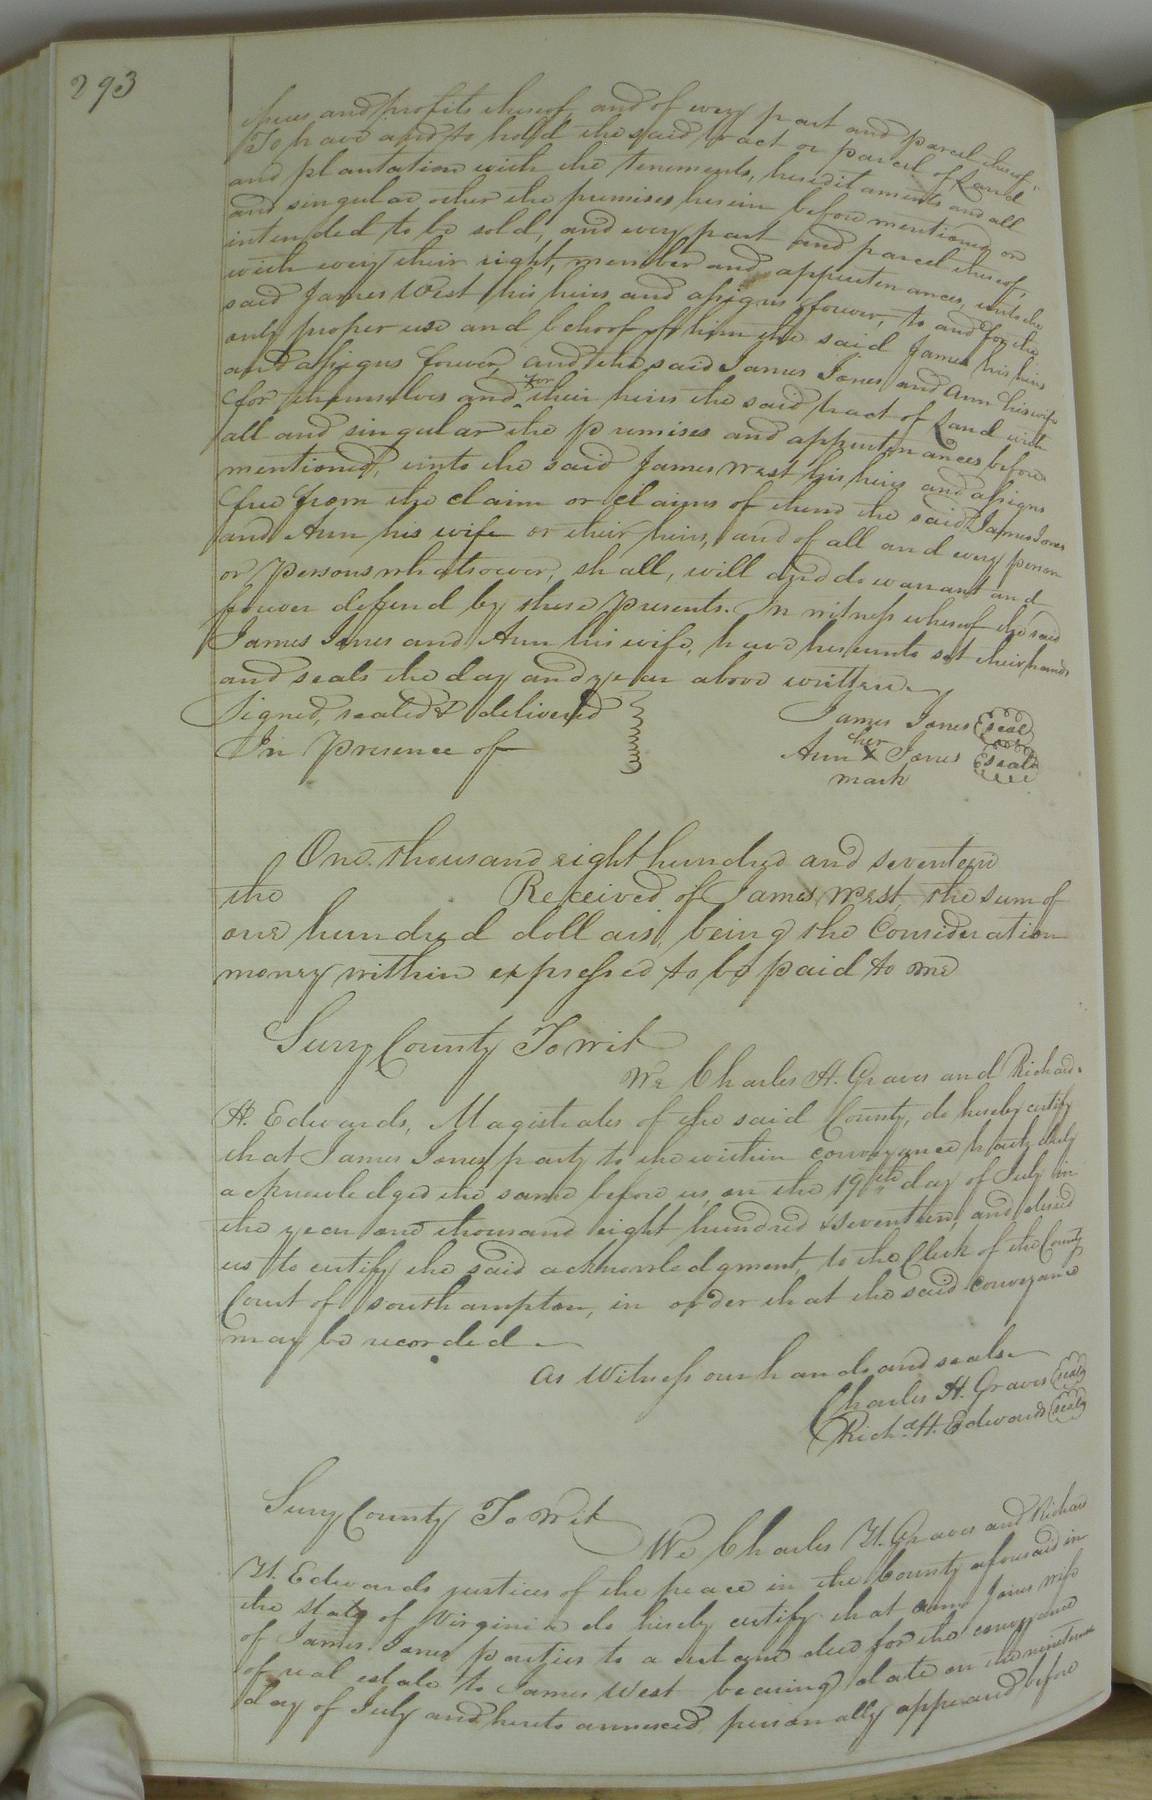 293
issues and profits thereof, and of every part and parcel thereof."
To have and to hold the said tract or parcel of Land
and plantation with the tenements, hereditaments and all
and singular other the premises herein before mentioned or
intended to be sold, and every part and parcel thereof,
with every their right, member and appurtenances, unto the
said James West his heirs and assigns forever, to and for the
only proper use and behoof of him the said James his heirs
and assigns forever, and the said James Jones and Ann his wife
for themselves and for their heirs the said tract of Land with
all and singular the premises and appurtenances before
mentioned, unto the said James West his heirs and assigns
free from the claim or claims of them the said James Jones
and Ann his wife or their heirs, and of all and every person
or Persons whatsoever, shall, will and do warrant and
forever defend by these Presents. In witness whereof the said
James Jones and Ann his wife, have hereunto set their hands
and seals the day and year above written.
Signed, sealed & delivered
In Presence of
James Jones (Seal)
Ann her X Jones (Seal)
mark
One thousand eight hundred and seventeen
the Received of James West, the sum of
one hundred dollars, being the Consideration
money within expressed to be paid to me
Surry County To wit
We Charles H. Graves and Richard
H. Edwards, Magistrates of the said County, do hereby certify
that James Jones party to the within conveyance hath duly
acknowledged the same before us, on the 19th day of July in
the year one thousand eight hundred & seventeen, and desired
us to certify the said acknowledgment, to the Clerk of the County
Court of Southampton, in order that the said conveyance
may be recorded
As Witness our hands and seals
Charles H. Graves (seal)
Richd. H. Edwards (seal)
Surry County To wit
We Charles H. Graves and Richard
H. Edwards justices of the peace in the County aforesaid in
the state of Virginia do hereby certify that Ann Jones wife
of James Jones parties to a certain deed for the conveyance
of real estate to James West bearing date on the nineteenth
day of July and hereto annexed, personally appeared before